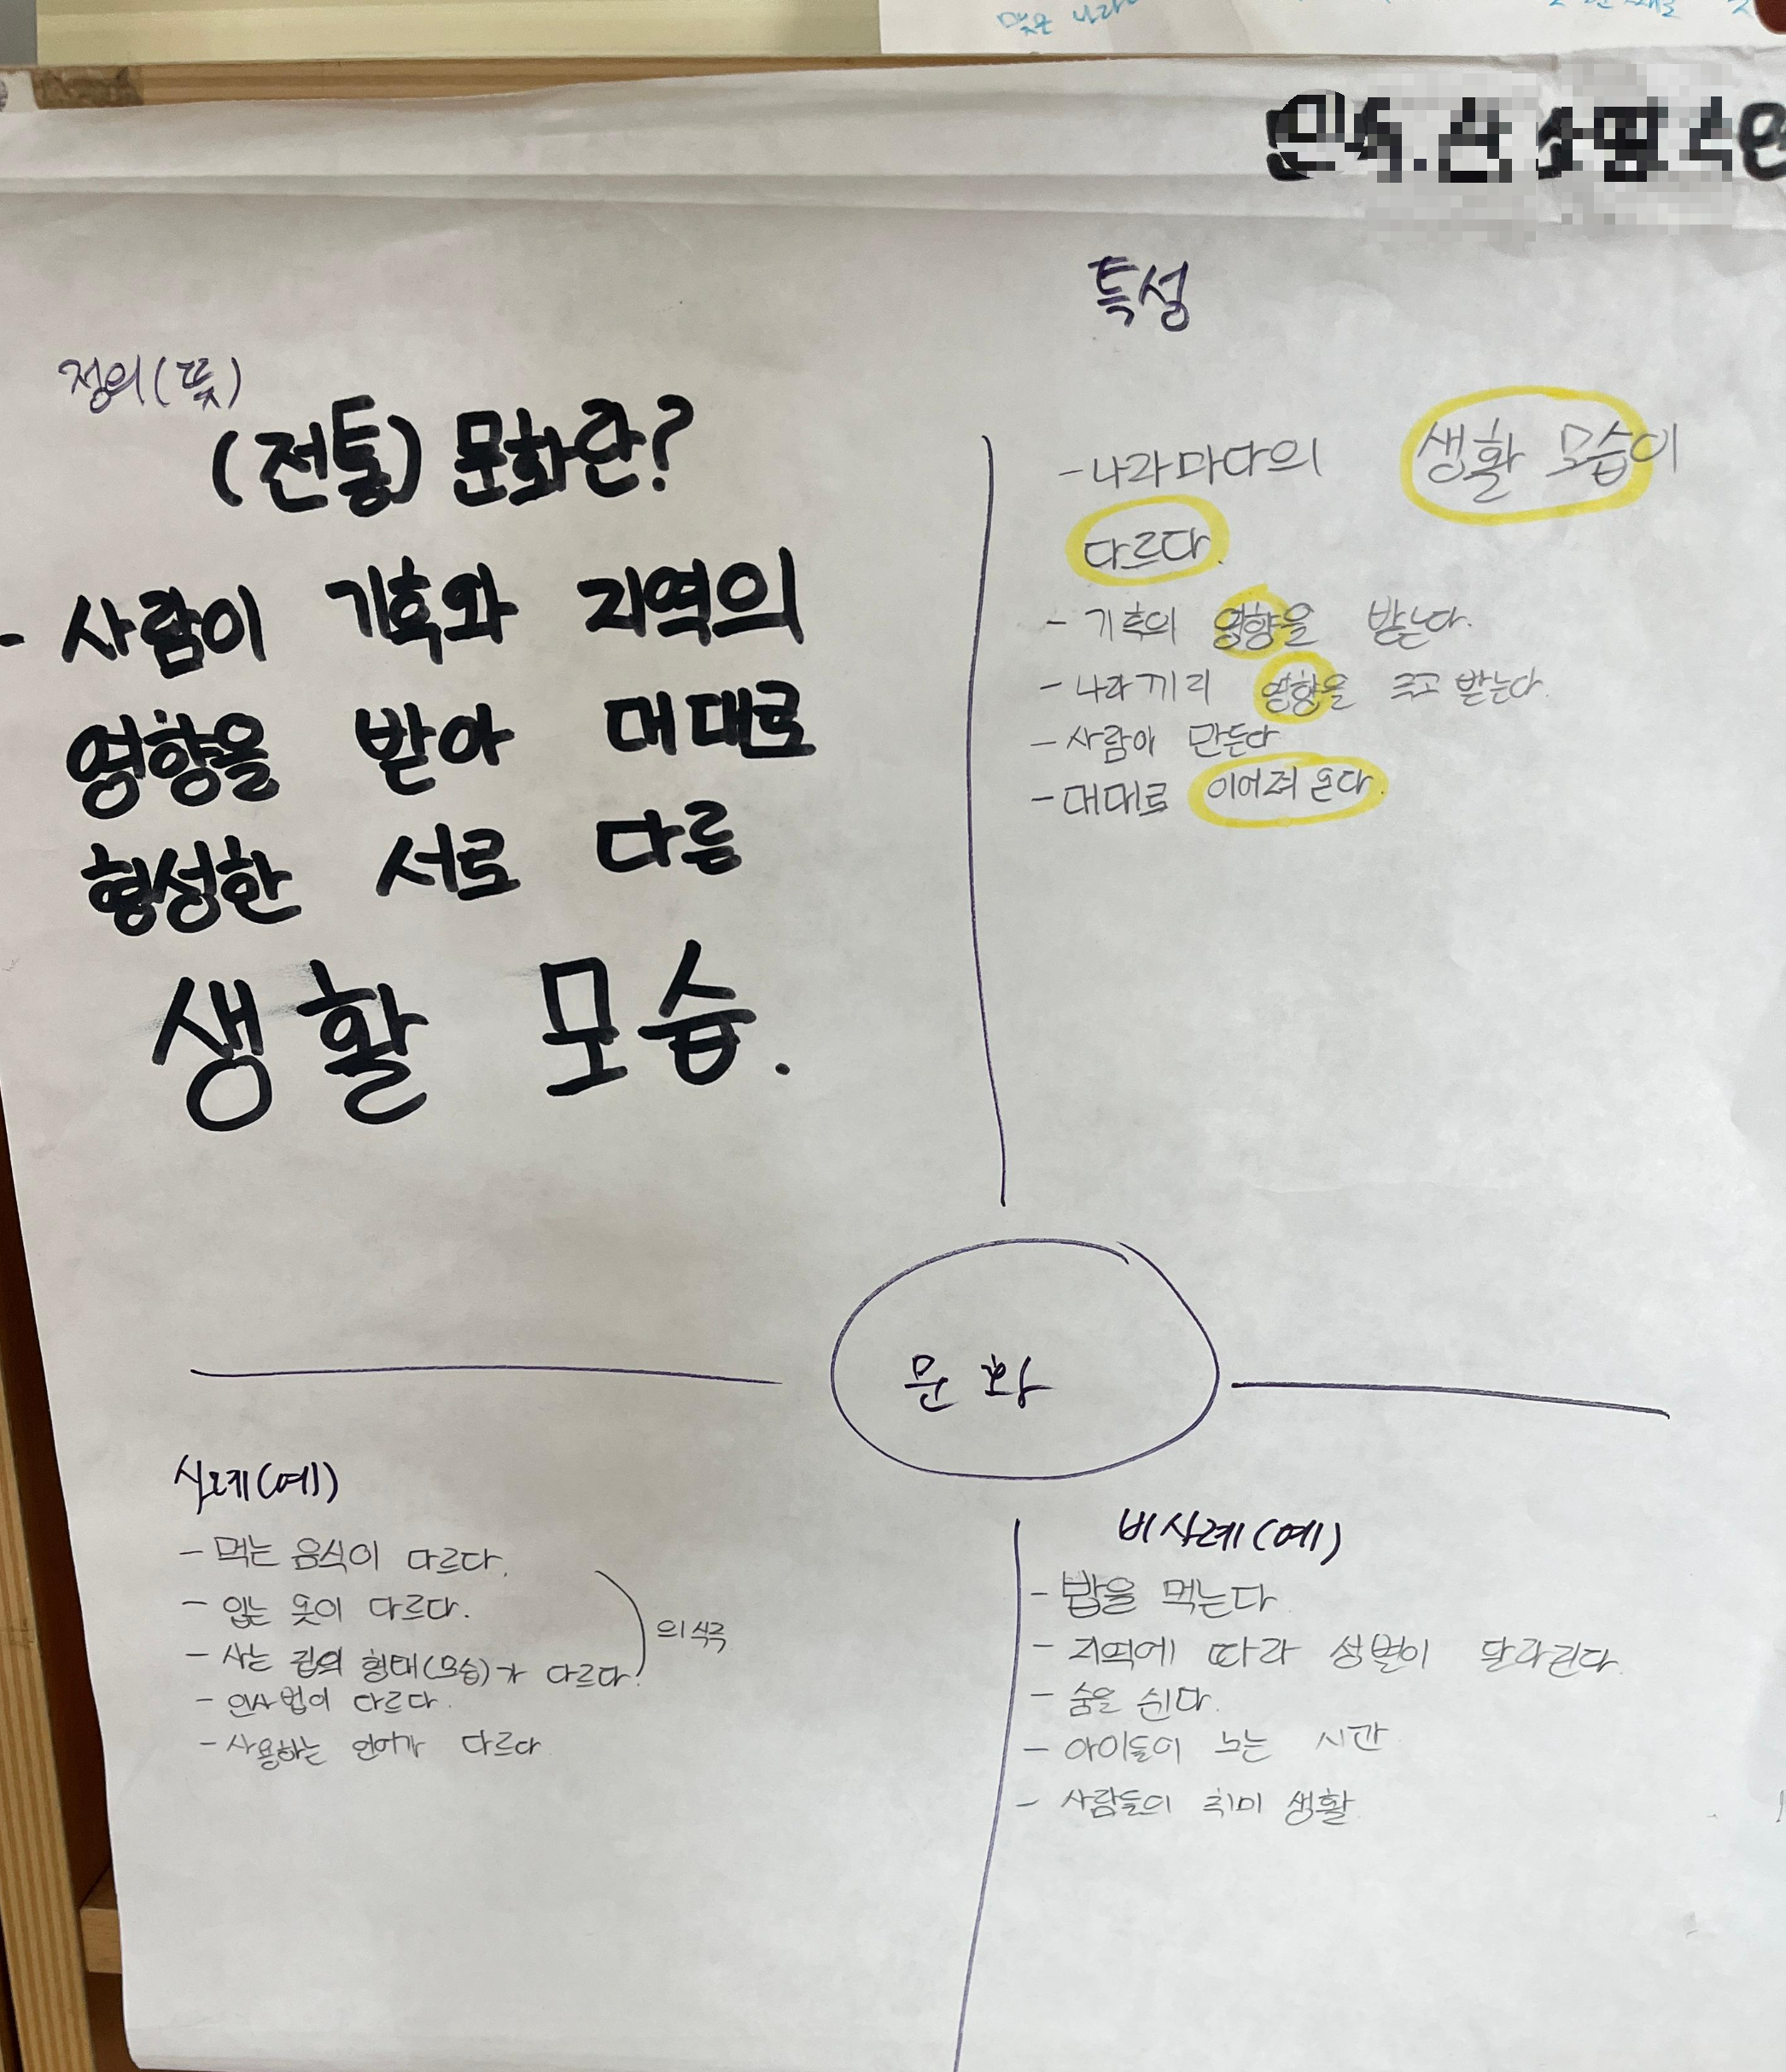 특성
정의(뜻)
(전통) 문화란?
- 사람이 기후와 지역의
영향을 받아 대대로
형성한 서로 다른
생활 모습.
- 나라마다의 생활 모습이
다르다.
- 기후의 영향을 받는다.
- 나라끼리 영향을 주고 받는다.
- 사람이 만든다
- 대대로 이어져 온다.
문화
사례(예)
- 먹는 음식이 다르다.
- 입는 옷이 다르다.
- 사는 집의 형태(모습)가 다르다.
의식주
- 인사법이 다르다.
- 사용하는 언어가 다르다
비사례(예)
- 밥을 먹는다
- 지역에 따라 성별이 달라진다.
- 숨을 쉰다.
- 아이들이 노는 시간
- 사람들의 취미 생활